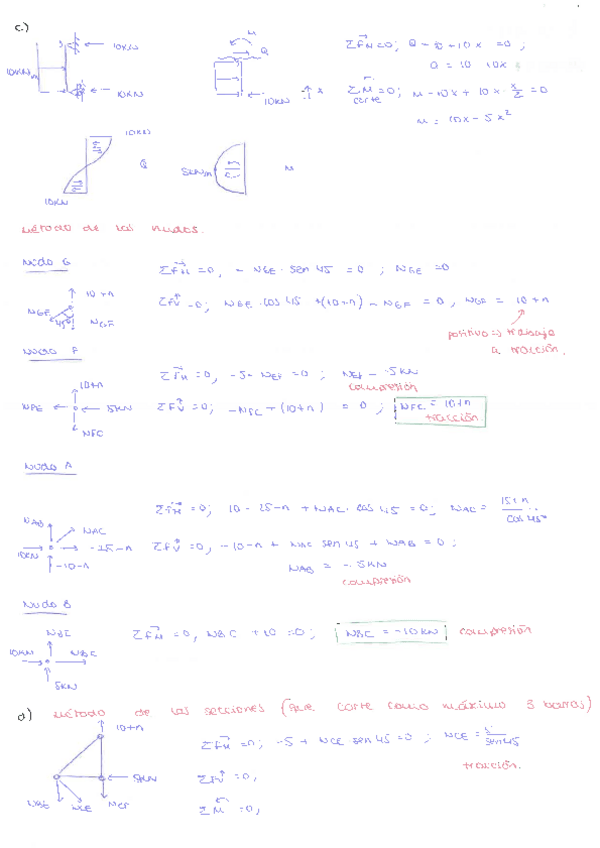 c.)
10KN
10KN
10KN
M
Q
10KN
x
ΣFH=0; Q-10+10x=0;
Q=10-10x
ΣM corte=0; M-10x+10x·x/2=0
M=10x-5x²
10KN
Q
10KN
5KNm
M
Método de los nudos.
Nudo G
ΣFH=0, -NGE·sen 45=0; NGE=0
10+n
NGE
45
NGF
ΣFV=0; NGE·cos 45+(10+n)-NGF=0, NGF=10+n
positivo=> trabaja
a tracción.
Nudo F
ΣFH=0, -5-NEF=0; NEF=-5KN
compresión
10+n
NFE
5KN
NFC
ΣFV=0; -NFC+(10+n)=0; NFC=10+n
tracción
Nudo A
ΣFH=0; 10-25-n+NAC·cos 45=0; NAC=15+n/cos 45º
NAB
NAC
10KN
-25-n
-10-n
ΣFV=0, -10-n+NAC sen 45+NAB=0;
NAB=-5KN
compresión
Nudo B
10KN
NBC
5KN
ΣFH=0, NBC+10=0; NBC=-10KN compresión
d) Método de las secciones (que corte como máximo 3 barras)
10+n
ΣFH=0; -5+NCE sen 45=0; NCE=5/sen45
tracción.
5KN
ΣFV=0,
NCE
ΣM=0,